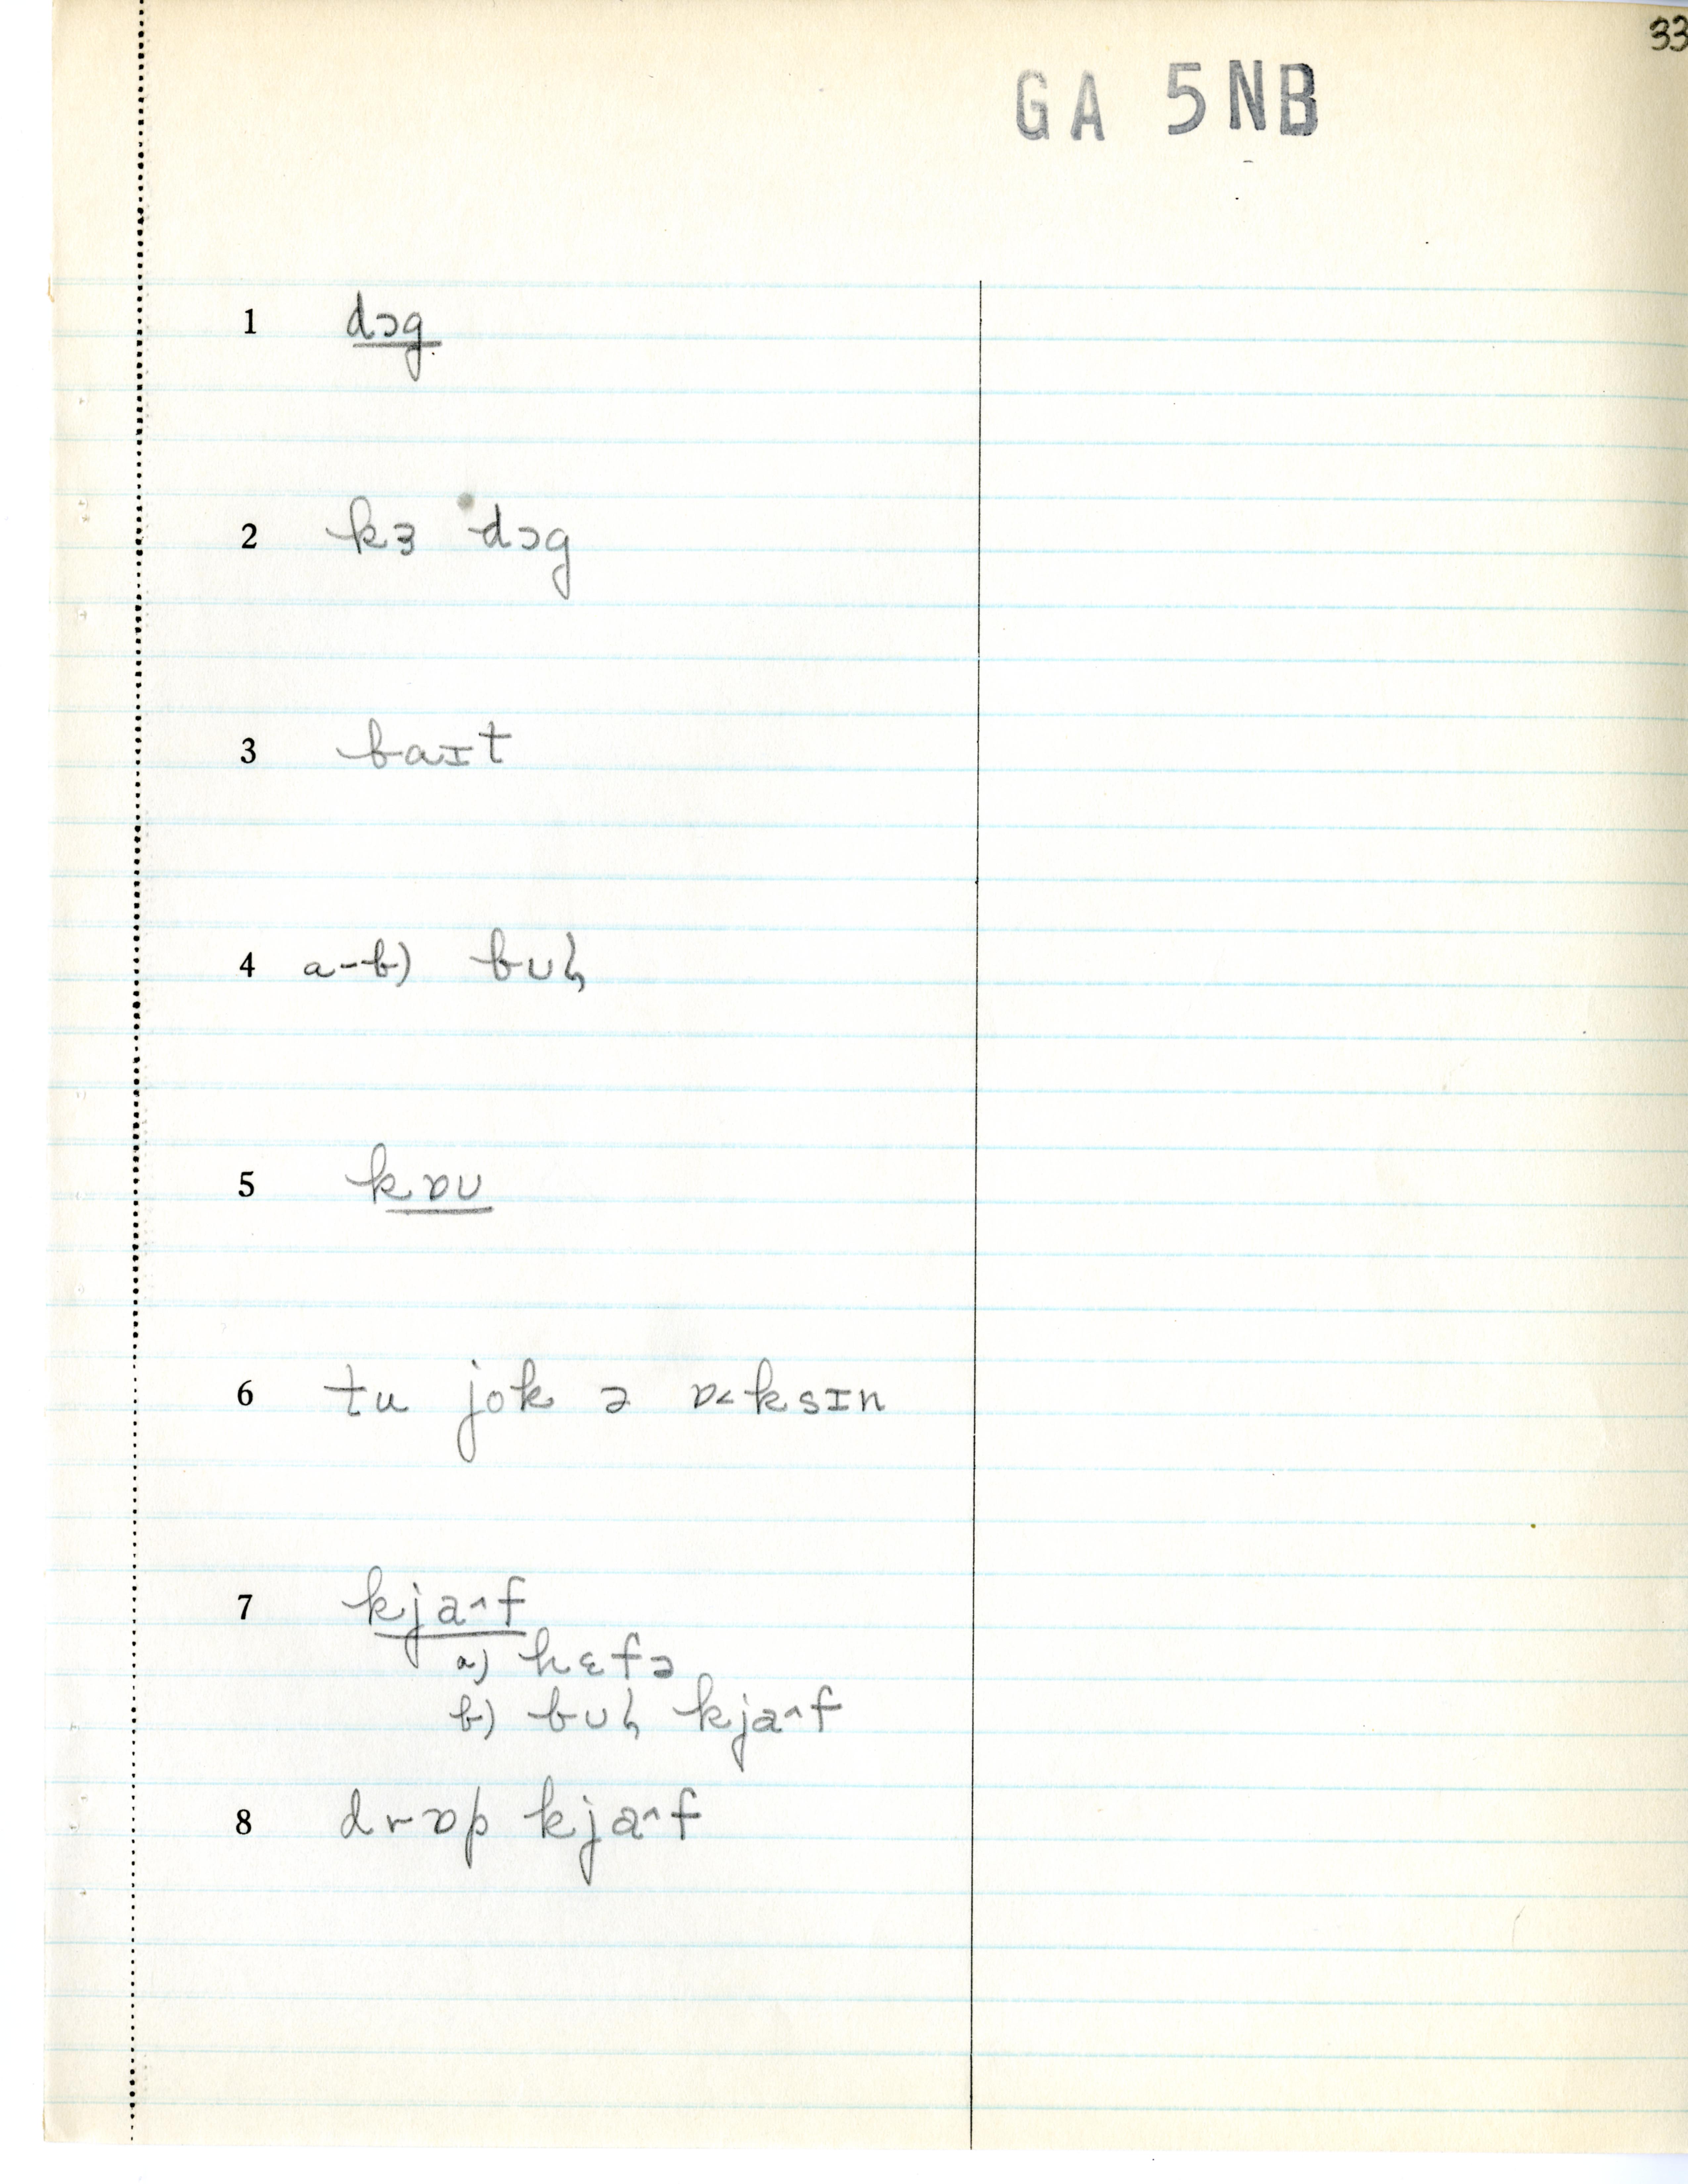 33
GA 5NB
1 dɔg
2 kɜ dɔg
3 baɪt
4 a-b) bʊɫ
5 kɒʊ
6 tu jok ə ɒ˂ksɪn
7 kja^f
a) hɛfə
b) bʊɫ kja^f
8 drɒp kja^f